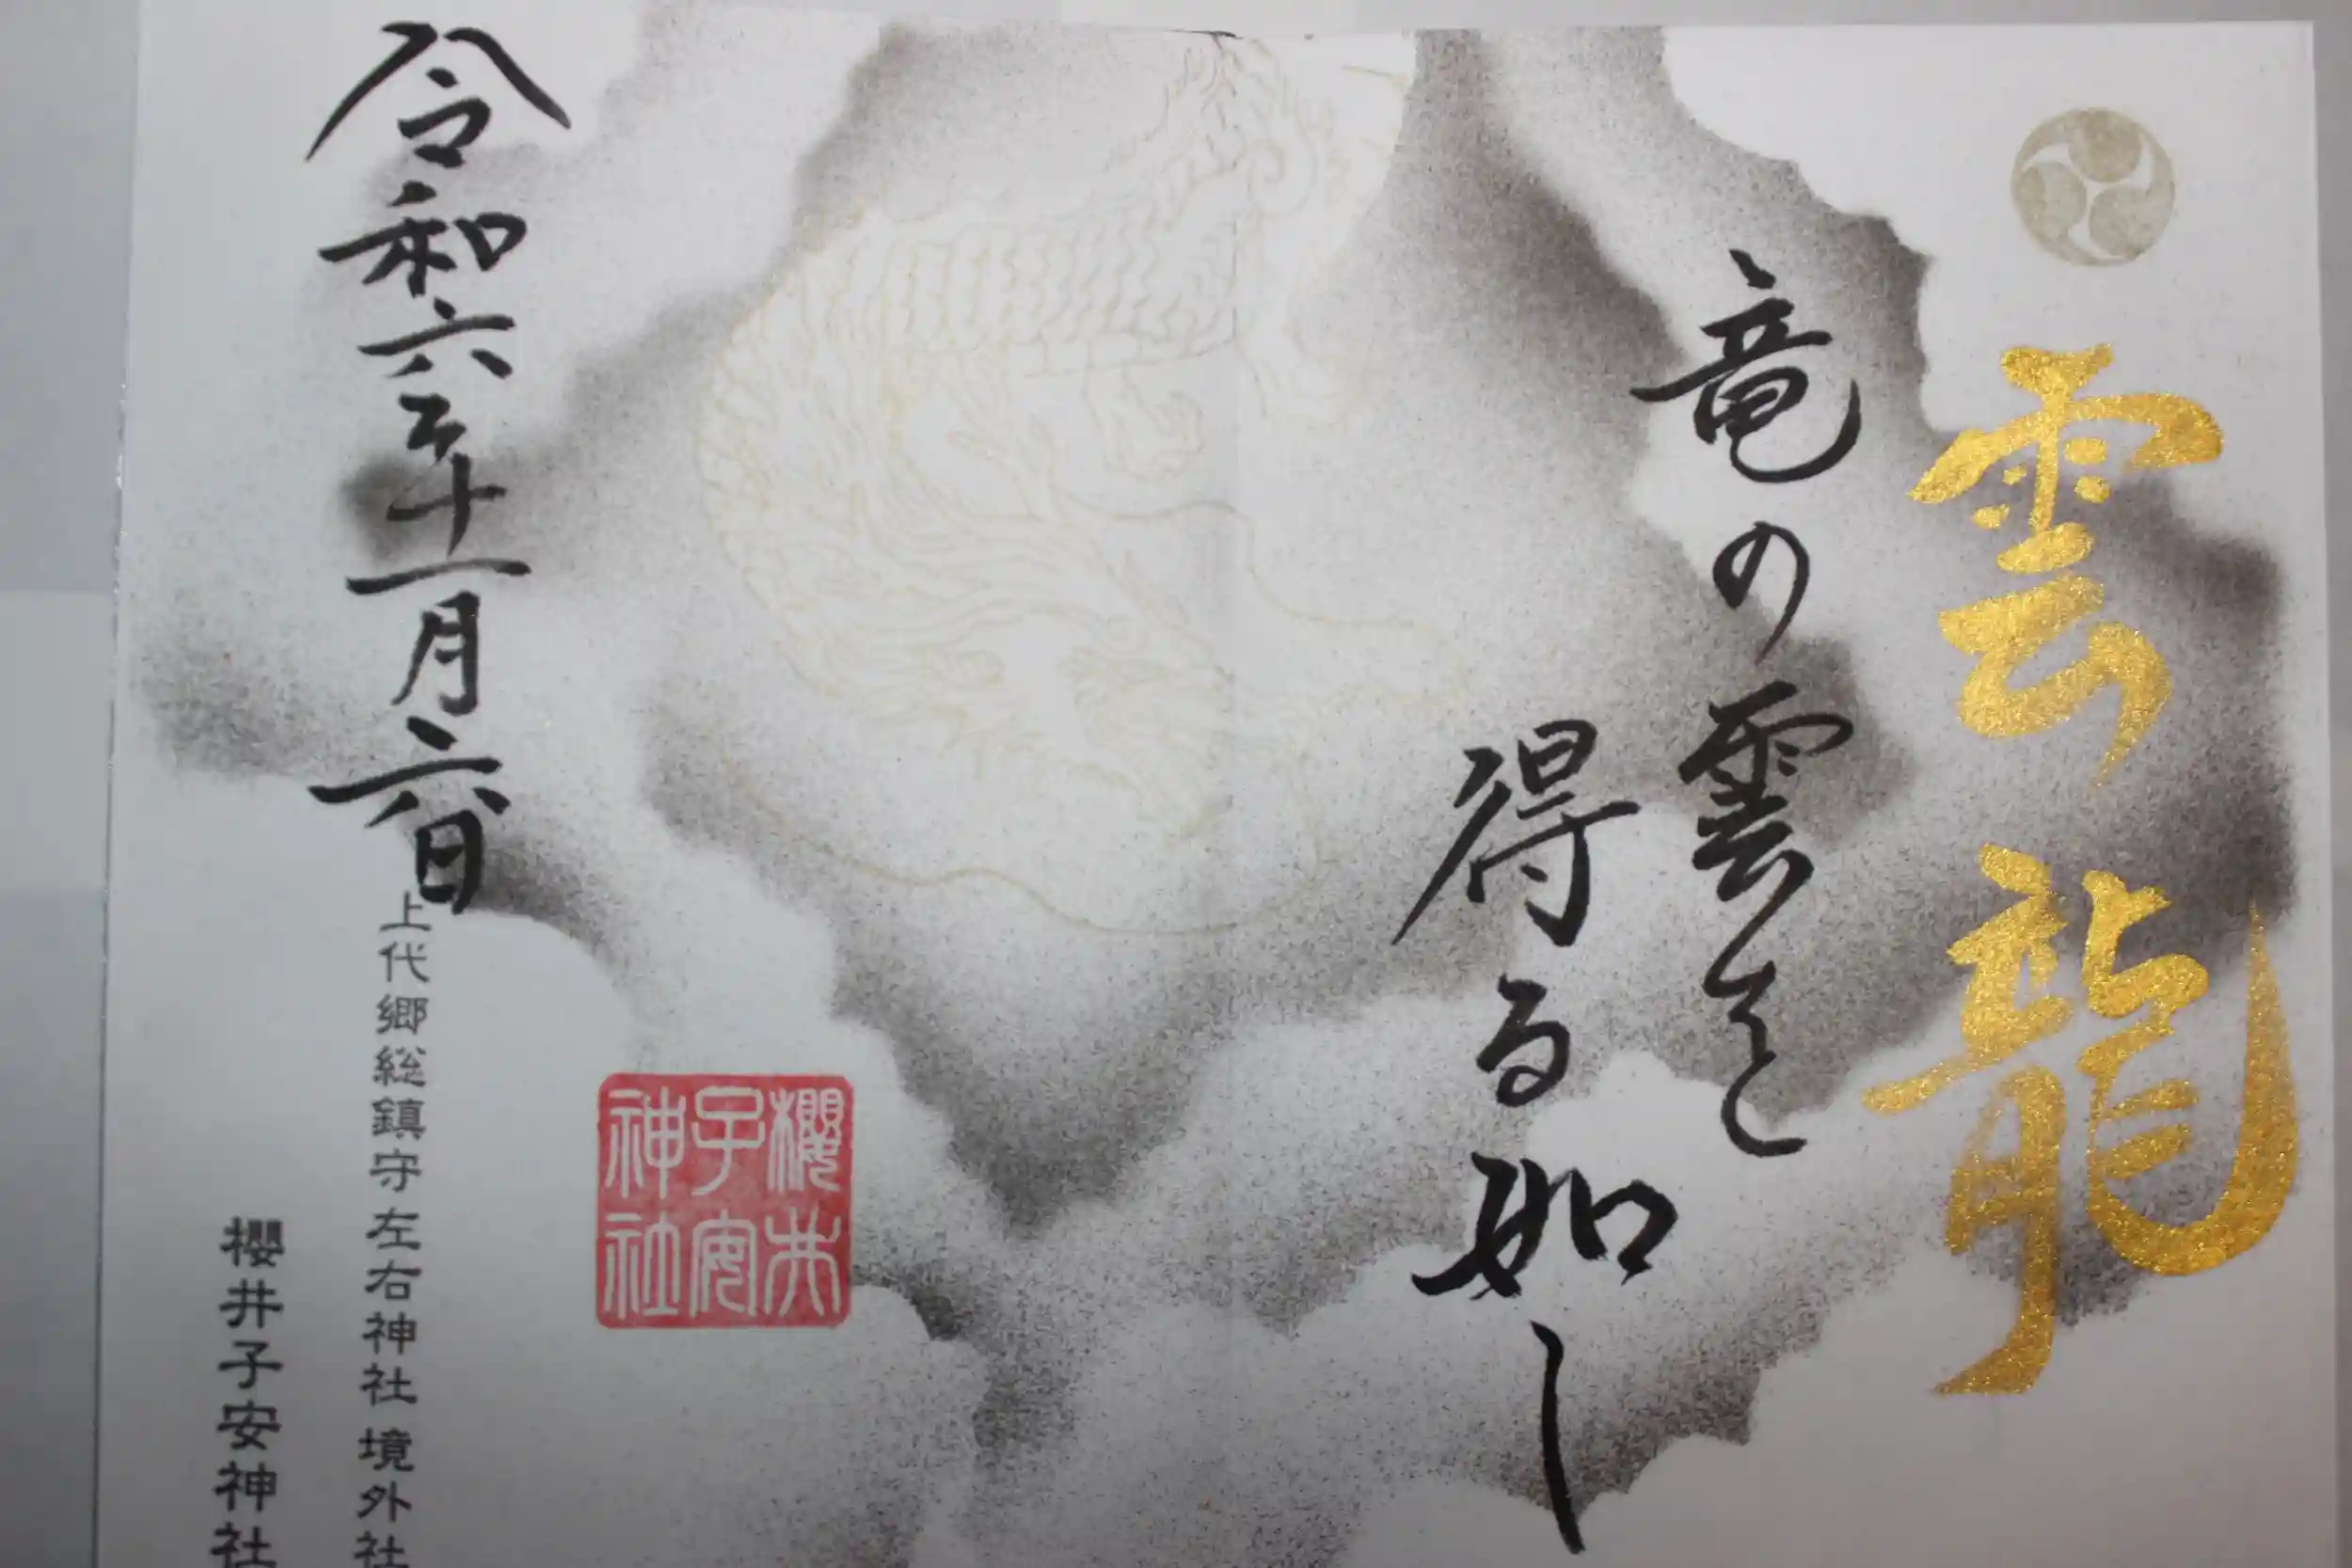 雲龍
竜の雲を
得る如し
櫻井
子安
神社
令和六年十一月六日
上代郷総鎮守左右神社 境外社
櫻井子安神社